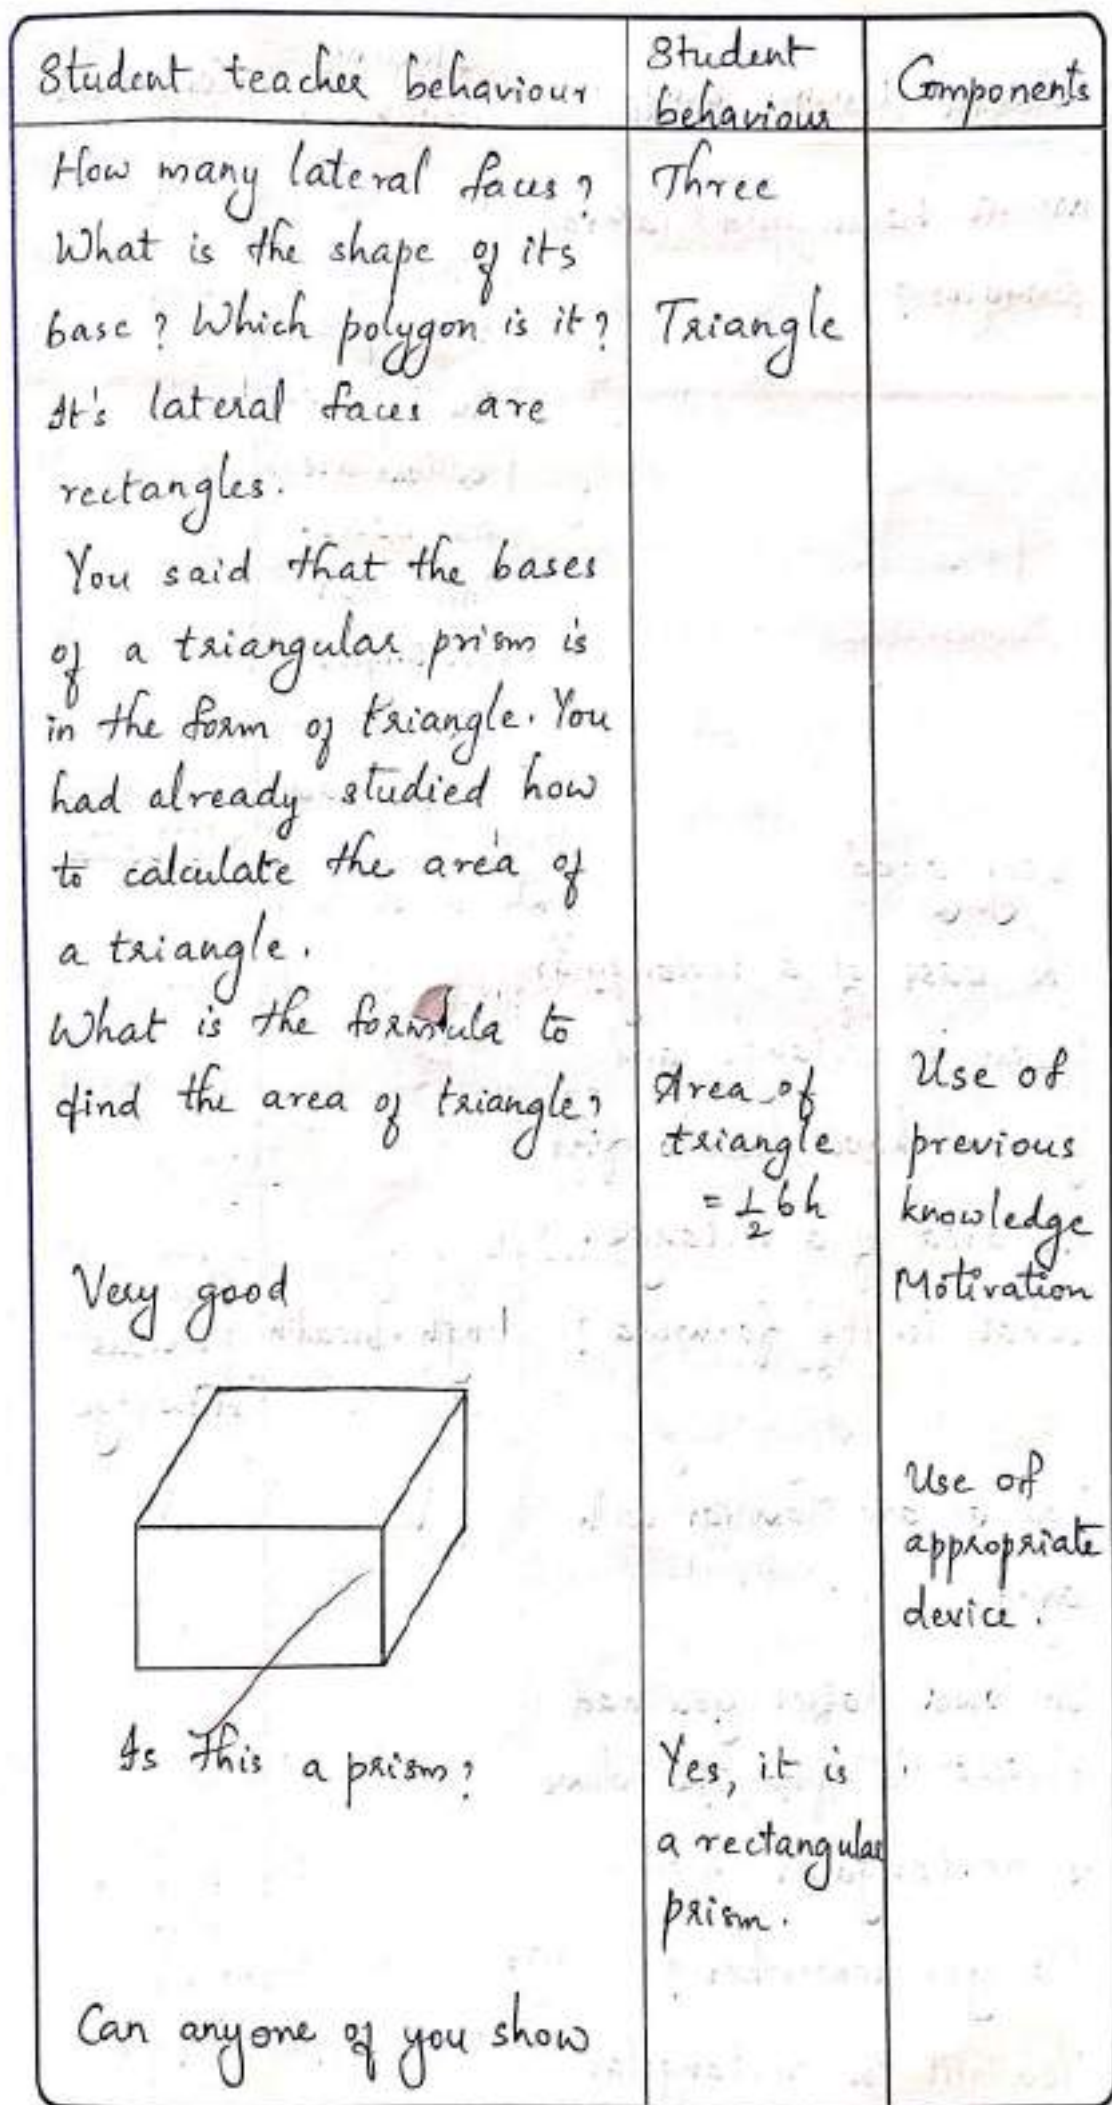 Student teacher behaviour
Student
behaviour
Components
How many lateral faces?
Three
What is the shape of its
base? Which polygon is it?
Triangle
It's lateral faces are
rectangles.
You said that the bases
of a triangular prism is
in the form of triangle. You
had already studied how
to calculate the area of
a triangle.
What is the formula to
find the area of triangle?
Area of
triangle
= 1/2 bh
Use of
previous
knowledge
Very good
Motivation
Use of
appropriate
device.
Is this a prism?
Yes, it is
a rectangular
prism.
Can anyone of you show